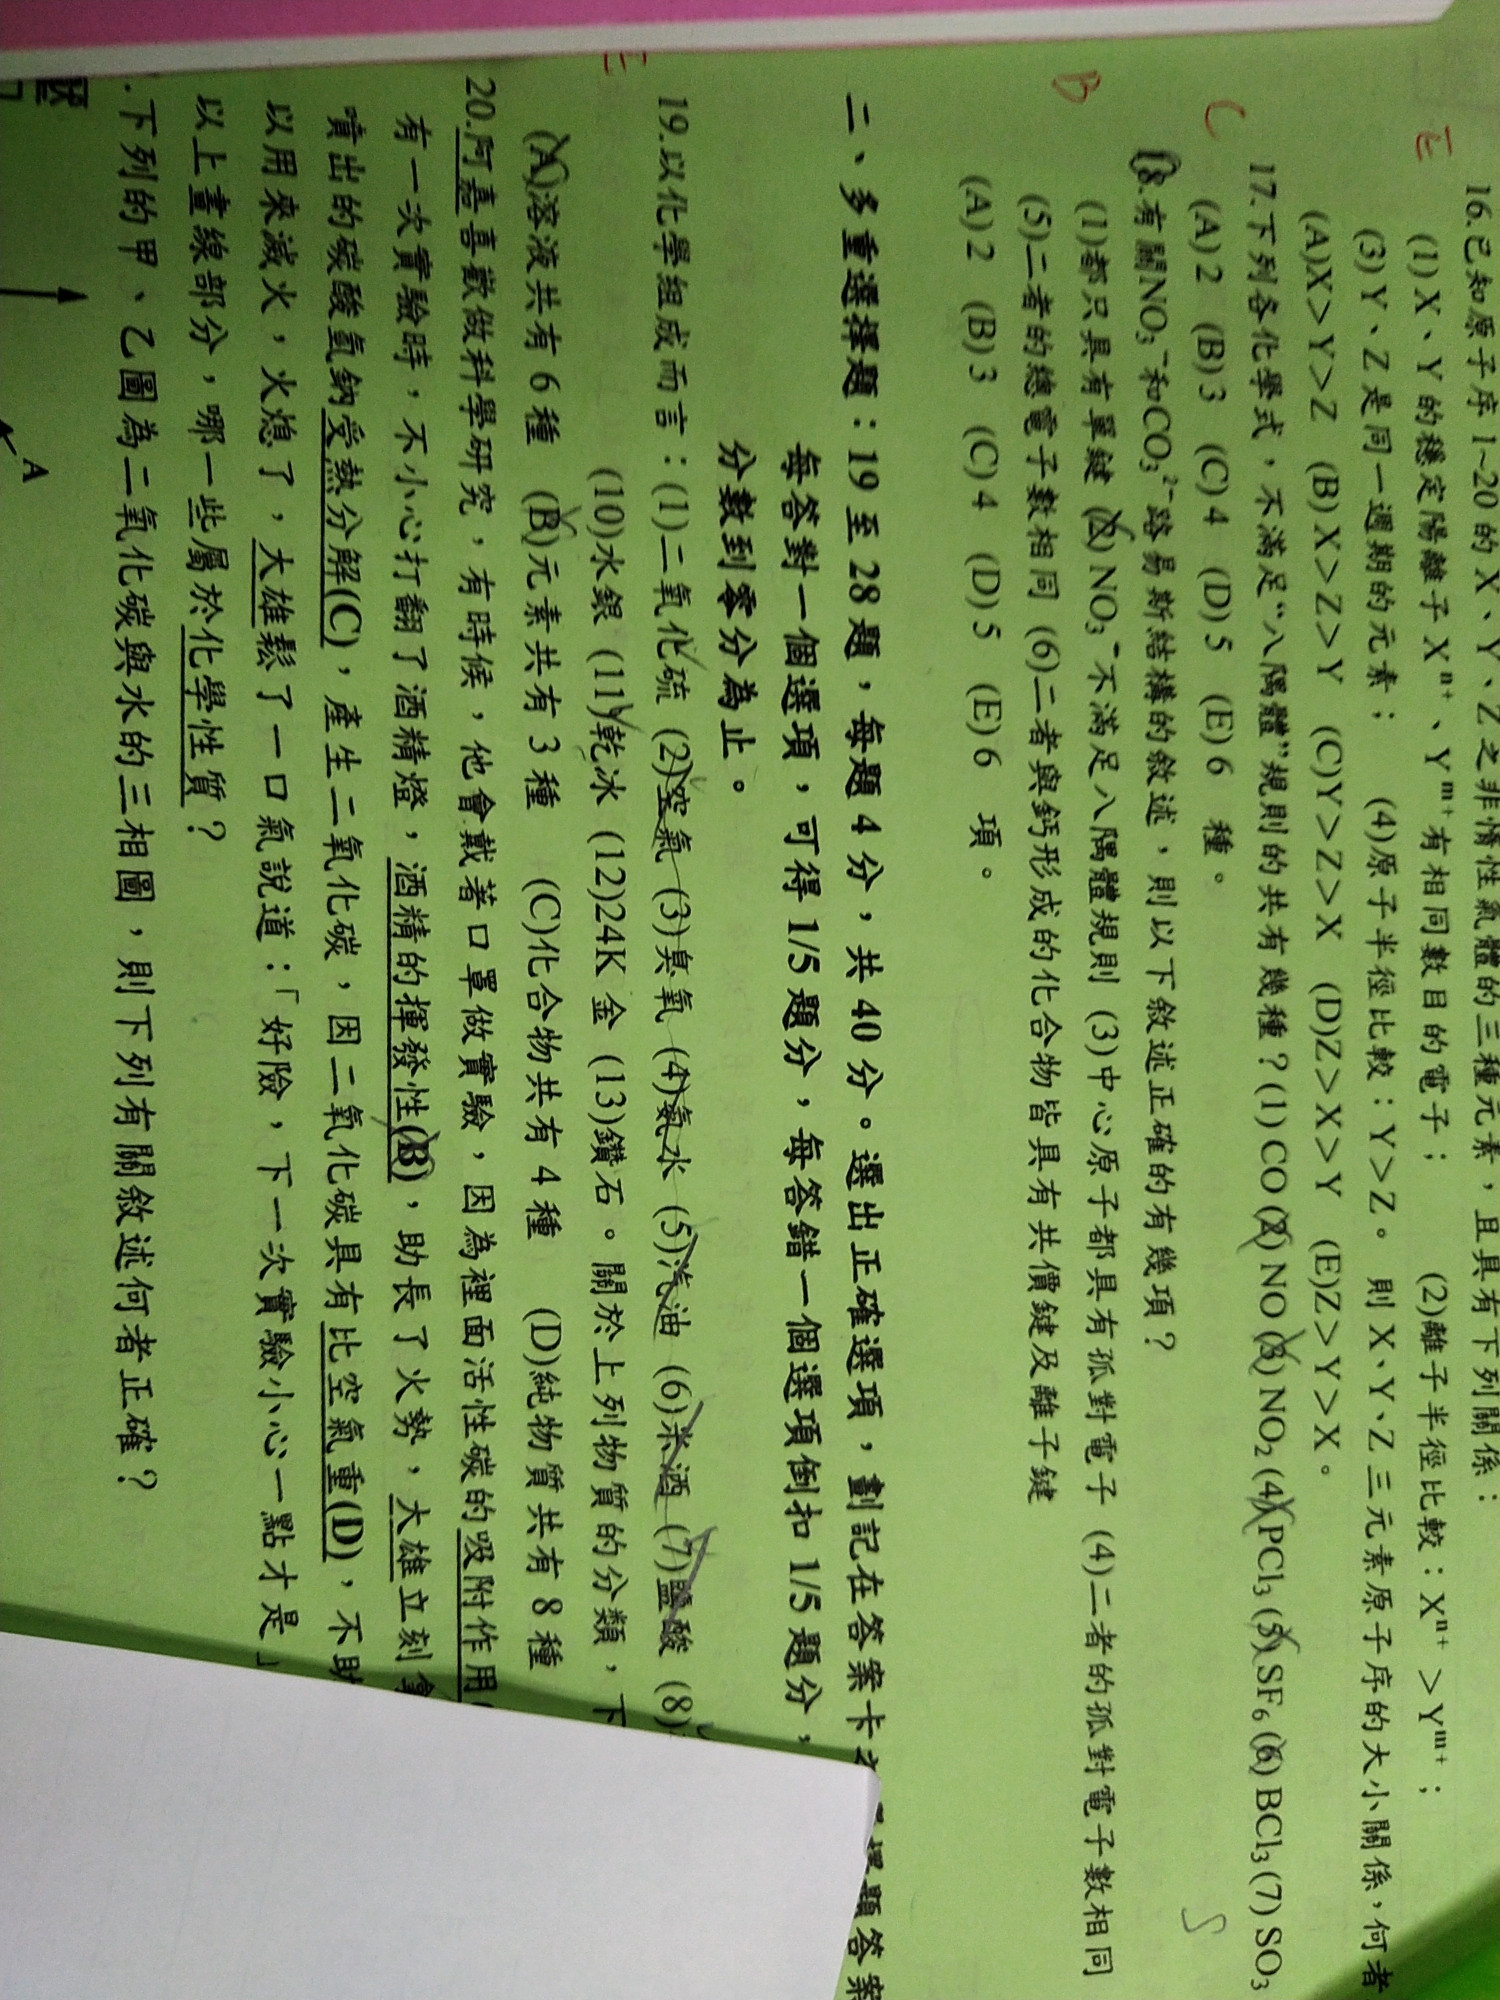 16.已知原子序 1~20 的 X、Y、Z 之非惰性氣體的三種元素，且具有下列關係：
(1) X、Y 的穩定陽離子 Xⁿ⁺、Yᵐ⁺有相同數目的電子； (2)離子半徑比較：Xⁿ⁺ >Yᵐ⁺；
(3) Y、Z 是同一週期的元素； (4)原子半徑比較：Y>Z。 則 X、Y、Z 三元素原子序的大小關係，何者
(A)X>Y>Z (B) X>Z>Y (C)Y>Z>X (D)Z>X>Y (E)Z>Y>X。
E
17.下列各化學式，不滿足“八隅體”規則的共有幾種？(1) CO (2) NO (3) NO₂ (4) PCl₃ (5) SF₆ (6) BCl₃ (7) SO₃
(A) 2 (B) 3 (C) 4 (D) 5 (E) 6 種。
C
18.有關NO₃⁻和CO₃²⁻路易斯結構的敘述，則以下敘述正確的有幾項？
(1)都只具有單鍵 (2) NO₃⁻不滿足八隅體規則 (3)中心原子都具有孤對電子 (4)二者的孤對電子數相同
(5)二者的總電子數相同 (6)二者與鈣形成的化合物皆具有共價鍵及離子鍵
(A) 2 (B) 3 (C) 4 (D) 5 (E) 6 項。
B
二、多重選擇題：19 至 28 題，每題 4 分，共 40 分。選出正確選項，劃記在答案卡 題答案
每答對一個選項，可得 1/5 題分，每答錯一個選項倒扣 1/5 題分，
分數到零分為止。
19.以化學組成而言：(1)二氧化硫 (2)空氣 (3)臭氧 (4)氨水 (5)汽油 (6)米酒 (7)鹽酸 (8)
(10)水銀 (11)乾冰 (12)24K 金 (13)鑽石。關於上列物質的分類，下
(A)溶液共有 6 種 (B)元素共有 3 種 (C)化合物共有 4 種 (D)純物質共有 8 種
20.阿嘉喜歡做科學研究，有時候，他會戴著口罩做實驗，因為裡面活性碳的吸附作用
有一次實驗時，不小心打翻了酒精燈，酒精的揮發性(B)，助長了火勢，大雄立刻
噴出的碳酸氫鈉受熱分解(C)，產生二氧化碳，因二氧化碳具有比空氣重(D)，不助
以用來滅火，火熄了，大雄鬆了一口氣說道：「好險，下一次實驗小心一點才是」
以上畫線部分，哪一些屬於化學性質？
.下列的甲、乙圖為二氧化碳與水的三相圖，則下列有關敘述何者正確？
A